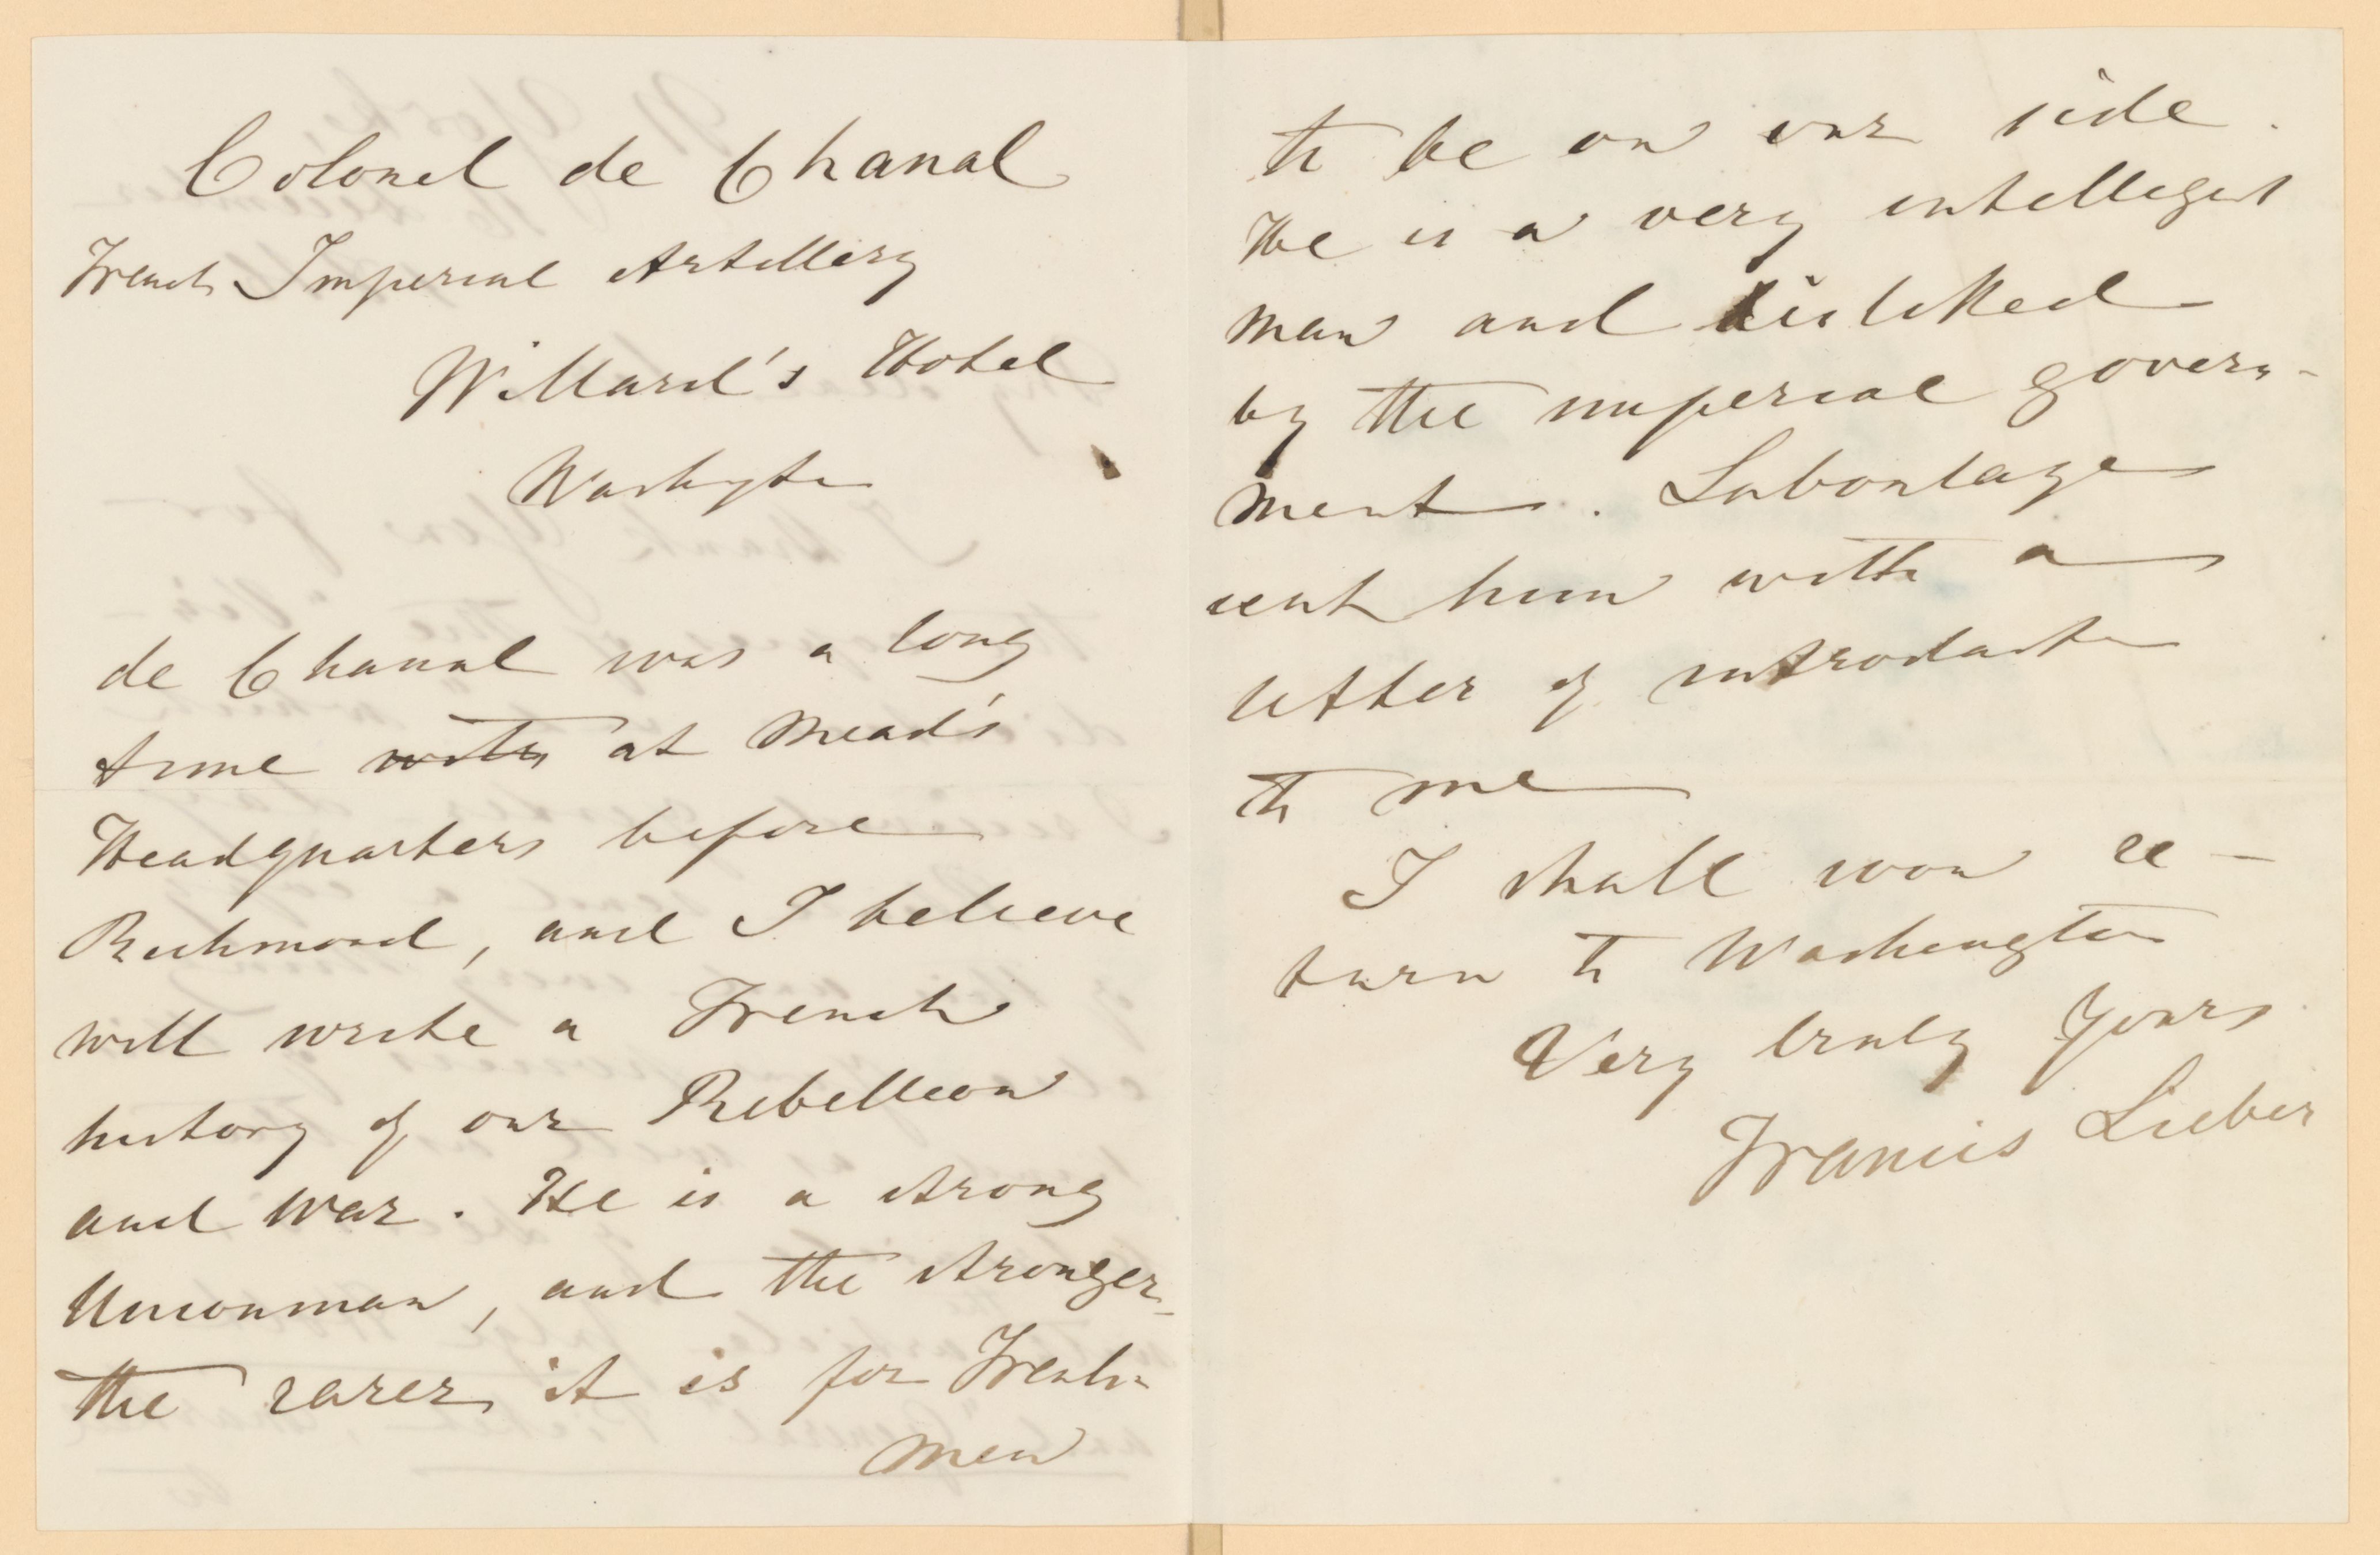 Colonel de Chanal
French Imperial Artillery
Willard's Hotel
Washington
de Chanal was a long
time with at Mead's
Headquarters before
Richmond, and I believe
will write a French
history of our Rebellion
and War. He is a strong
Unionman, and the stronger,
the rarer it is for French-
men
to be on our side.
He is a very intelligent
man and is liked
by the imperial govern-
ment. Laboulaye
sent him with a
letter of introduction
to me
I shall soon re-
turn to Washington
Very truly Yours
Francis Lieber